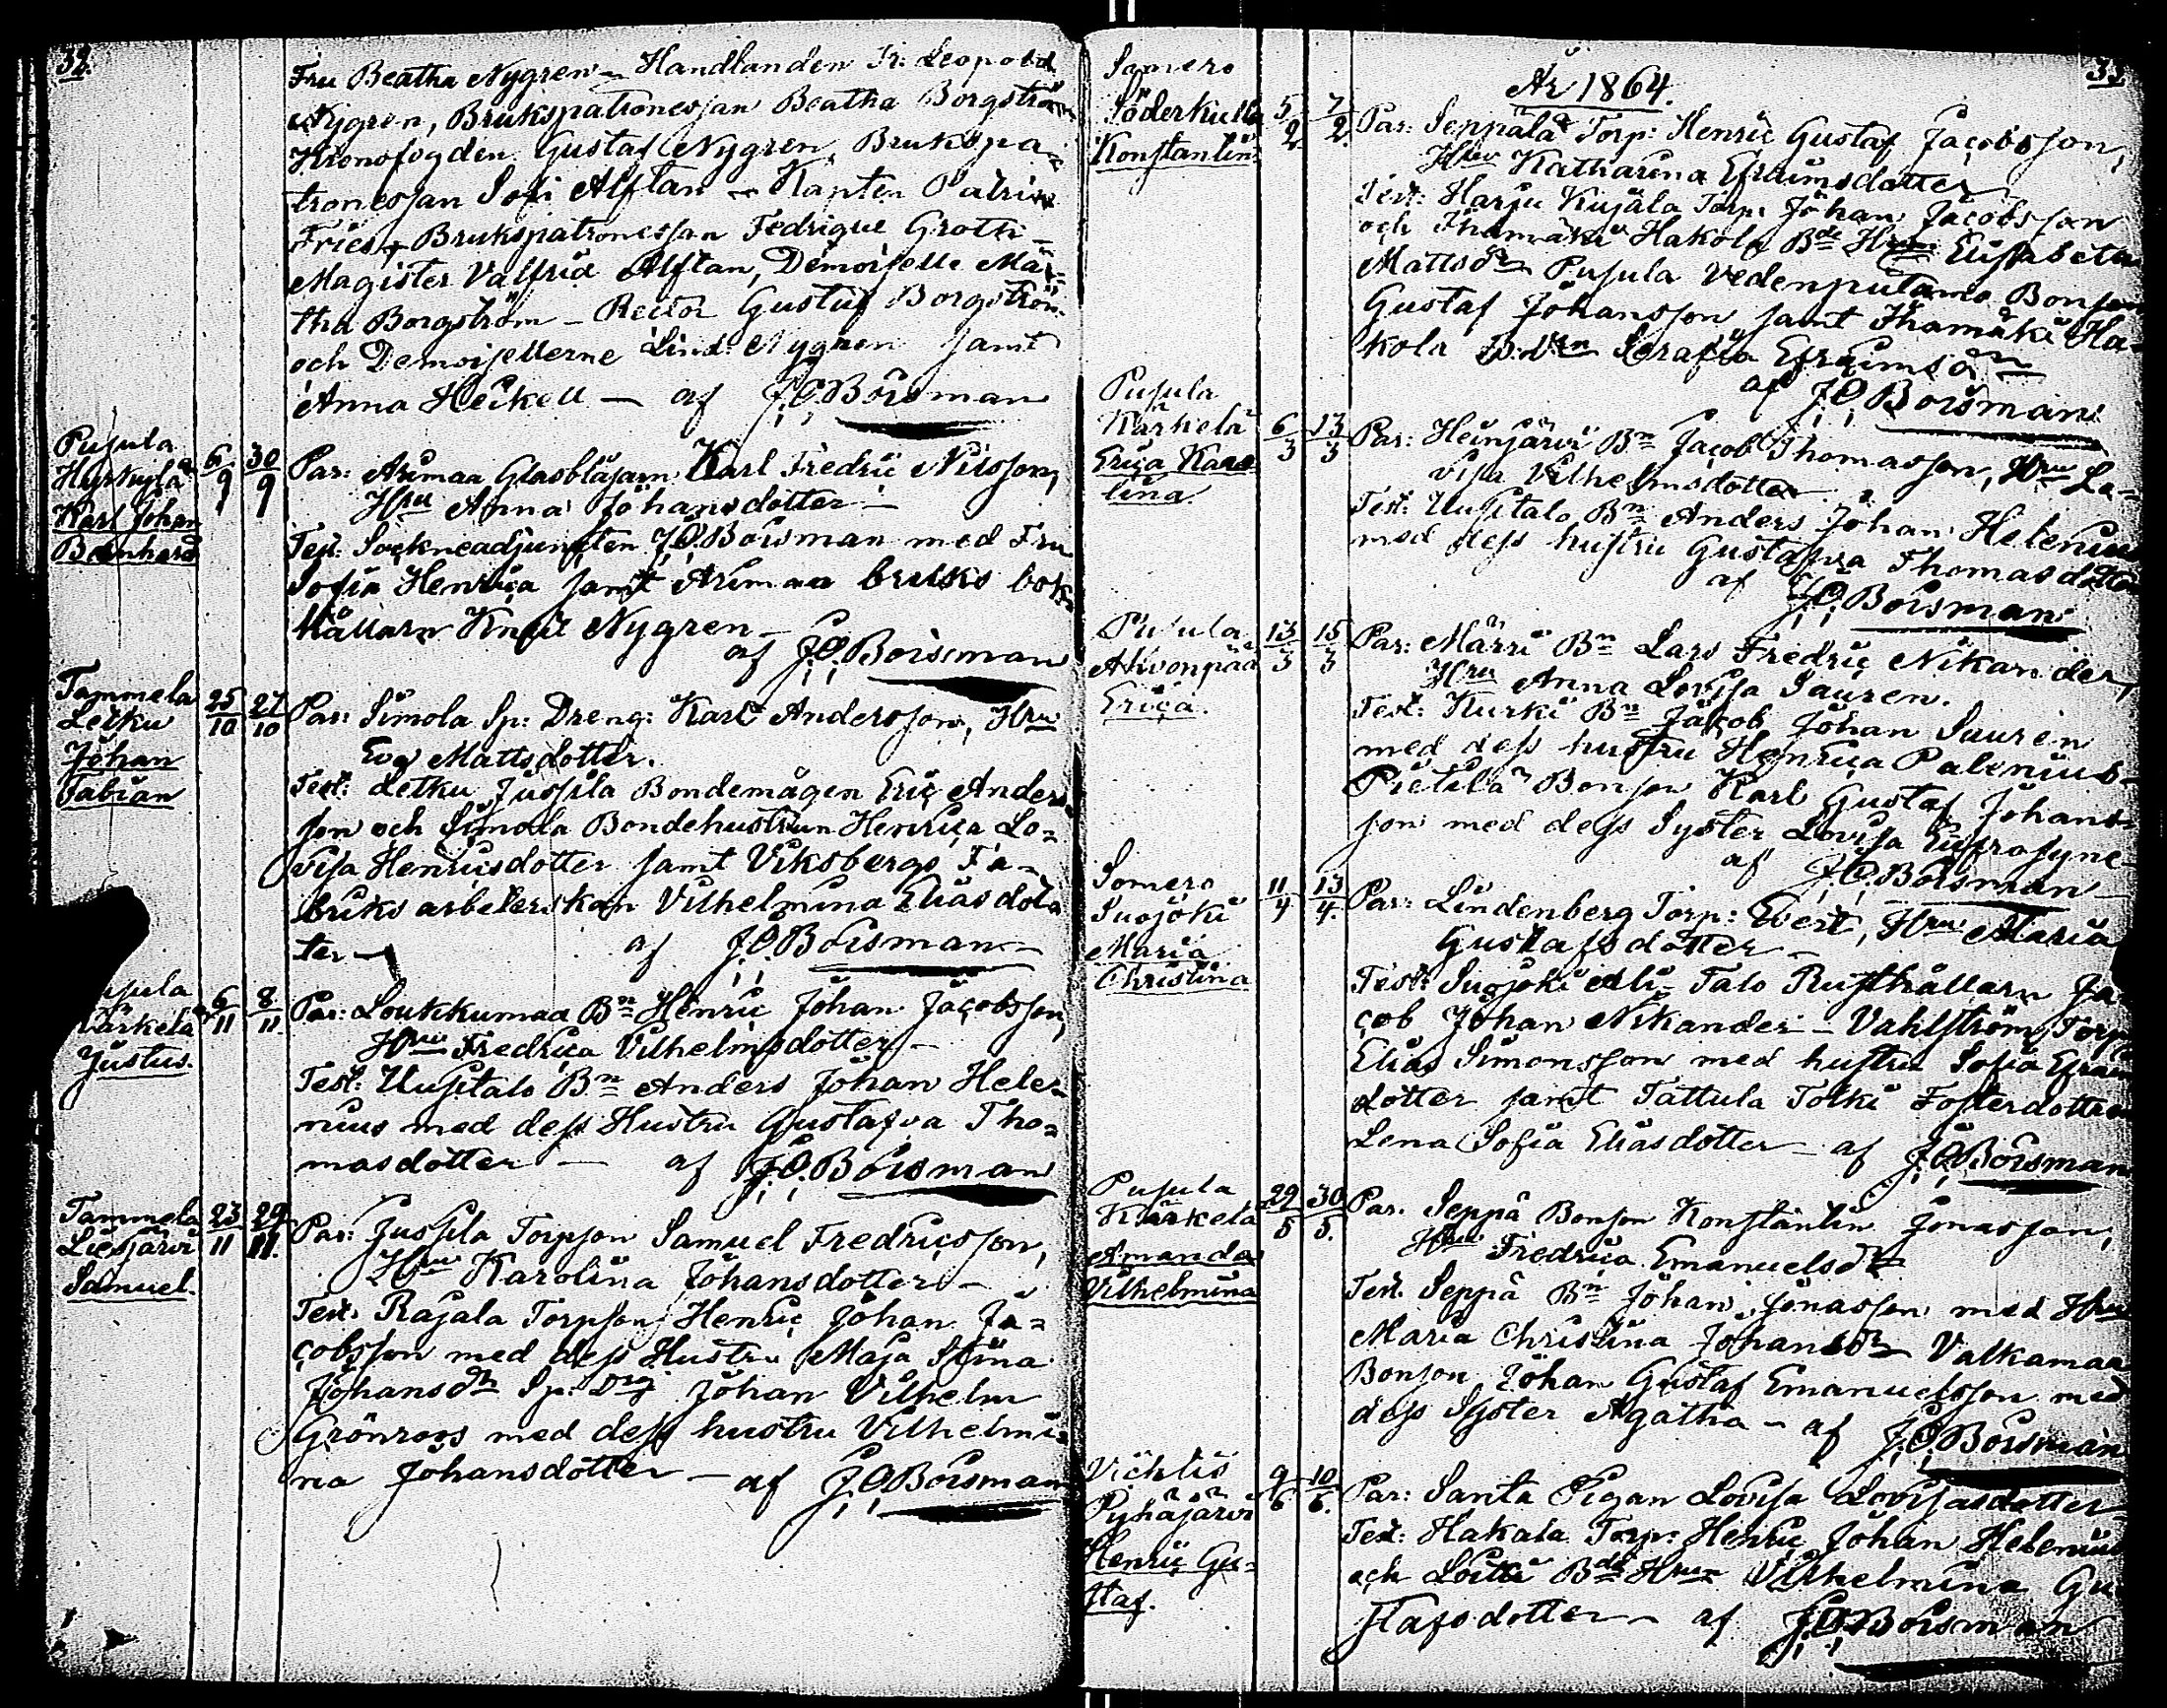 32.
Fru Beatha Nygren – Handlanden Fr: Leopold
Nygren, Brukspatronessan Beatha Borgström
Kronofogden Gustaf Nygren, Brukspa-
tronessan Sofi Alftan – Kapten Patrik
Fries – Brukspatronessan Fedrique Groth –
Magister Valfrid Alftan, Demoiselle Mar-
tha Borgström – Rector Gustaf Borgström
och Demoisellerne Lind: Nygren samt
Anna Heikell – af J.O. Boisman
Pusula
Hyrkylä
Karl Johan
Bernhard
6/9 30/9
Par: Arimaa Glasblåsarn Karl Fredric Nilsson,
Hru Anna Johansdotter –
Test: Sockneadjuncten J.O. Boisman med Fru
Sofia Henrica samt Arimaa bruks bok-
hållarn Knut Nygren –
af J.O. Boisman
Tammela
Letku
Johan
Fabian
25/10 27/10
Par: Simola Sp: Dreng: Karl Andersson, Hru
Eva Mattsdotter.
Test: Letku Jussila Bondemågen Eric Anders-
son och Simola Bondehustrun Henrica Lo-
visa Henricsdotter samt Viksbergs Fa-
briks arbeterskan Vilhelmina Eliasdot-
ter – af J.O. Boisman
usula
ärkelä
Justus.
6/11 8/11.
Par: Loukkumaa Bn Henric Johan Jacobsson,
Hru Fredrica Vilhelmsdotter –
Test: Uusitalo Bn Anders Johan Hele-
nius med dess Hustru Gustafva Tho-
masdotter – af J.O. Boisman
Tammela
Liesjärvi
Samuel.
23/11 29/11.
Par: Jussila Torpson Samuel Fredricsson,
Hru Karolina Johansdotter –
Test: Rajala Torpson Henric Johan Ja-
cobsson med dess Hustru Maja Stina
Johansdtr Sp: Drg Johan Vilhelm
Grönroos med dess hustru Vilhelmi-
na Johansdotter – af J.O. Boisman
År 1864.
Somero
Söderkulla
Konstantin
5/2 7/2.
Par: Seppälä Torp: Henric Gustaf Jacobsson,
Hru Katharina Efraimsdotter
Test: Harju Kujala Torp: Johan Jacobsson
och Ihamäki Hakola Bde Hru Elisabeta
Mattsdr Pusula Vedenputama Bonson
Gustaf Johansson samt Ihamäki Ha-
kola Serafia Efraimsdr
af J.O. Boisman
Pusula
Kärkelä
Erica Karo-
lina
6/3 13/3
Par: Heinjärvi Bn Jacob Thomasson, Hru Lo-
visa Vilhelmsdotter
Test: Uusitalo Bn Anders Johan Helenius
med dess hustru Gustafva Thomasdotter
af J.O. Boisman
Pusula
Ahvonpää
Erica.
13/3 15/3
Par: Märri Bn Lars Fredric Nikander,
Hru Anna Lovisa Sauren.
Test: Kurki Bn Jacob Johan Sauren
med dess hustru Henrica Palenius –
Pietilä Bonson Karl Gustaf Johans-
son med dess Syster Lovisa Eufrosyne –
af J.O. Boisman
Somero
Suojoki
Maria
Christina
11/4 13/4.
Par: Lindenberg Torp: Evert, Hru Maria
Gustafsdotter –
Test: Suojoki Ali-Talo Rusthållarn Ja-
cob Johan Nikander – Vahlström Torp
Elias Simonsson med hustru Sofia Efraims
dotter samt Tattula Tolki Fosterdottren
Lena Sofia Eliasdotter – af J.O. Boisman
Pusula
Kärkelä
Amanda
Vilhelmina
29/5 30/5.
Par. Seppä Bonson Konstantin Jonasson,
Hru Fredrica Emanuelsdr
Test. Seppä Bn Johan Jonasson med Hru
Maria Christina Johansdr Valkamaa
Bonson Johan Gustaf Emanuelsson med
dess Syster Agatha – af J.O. Boisman
Vichtis
Pyhäjärvi
Henric Gu-
staf.
9/6 10/6.
Par: Santa Pigan Lovisa Lovisasdotter
Test: Hakala Torp: Henric Johan Helenius
och Loitti Bde Hru Vilhelmina Gu
stafsdotter – af J.O. Boisman